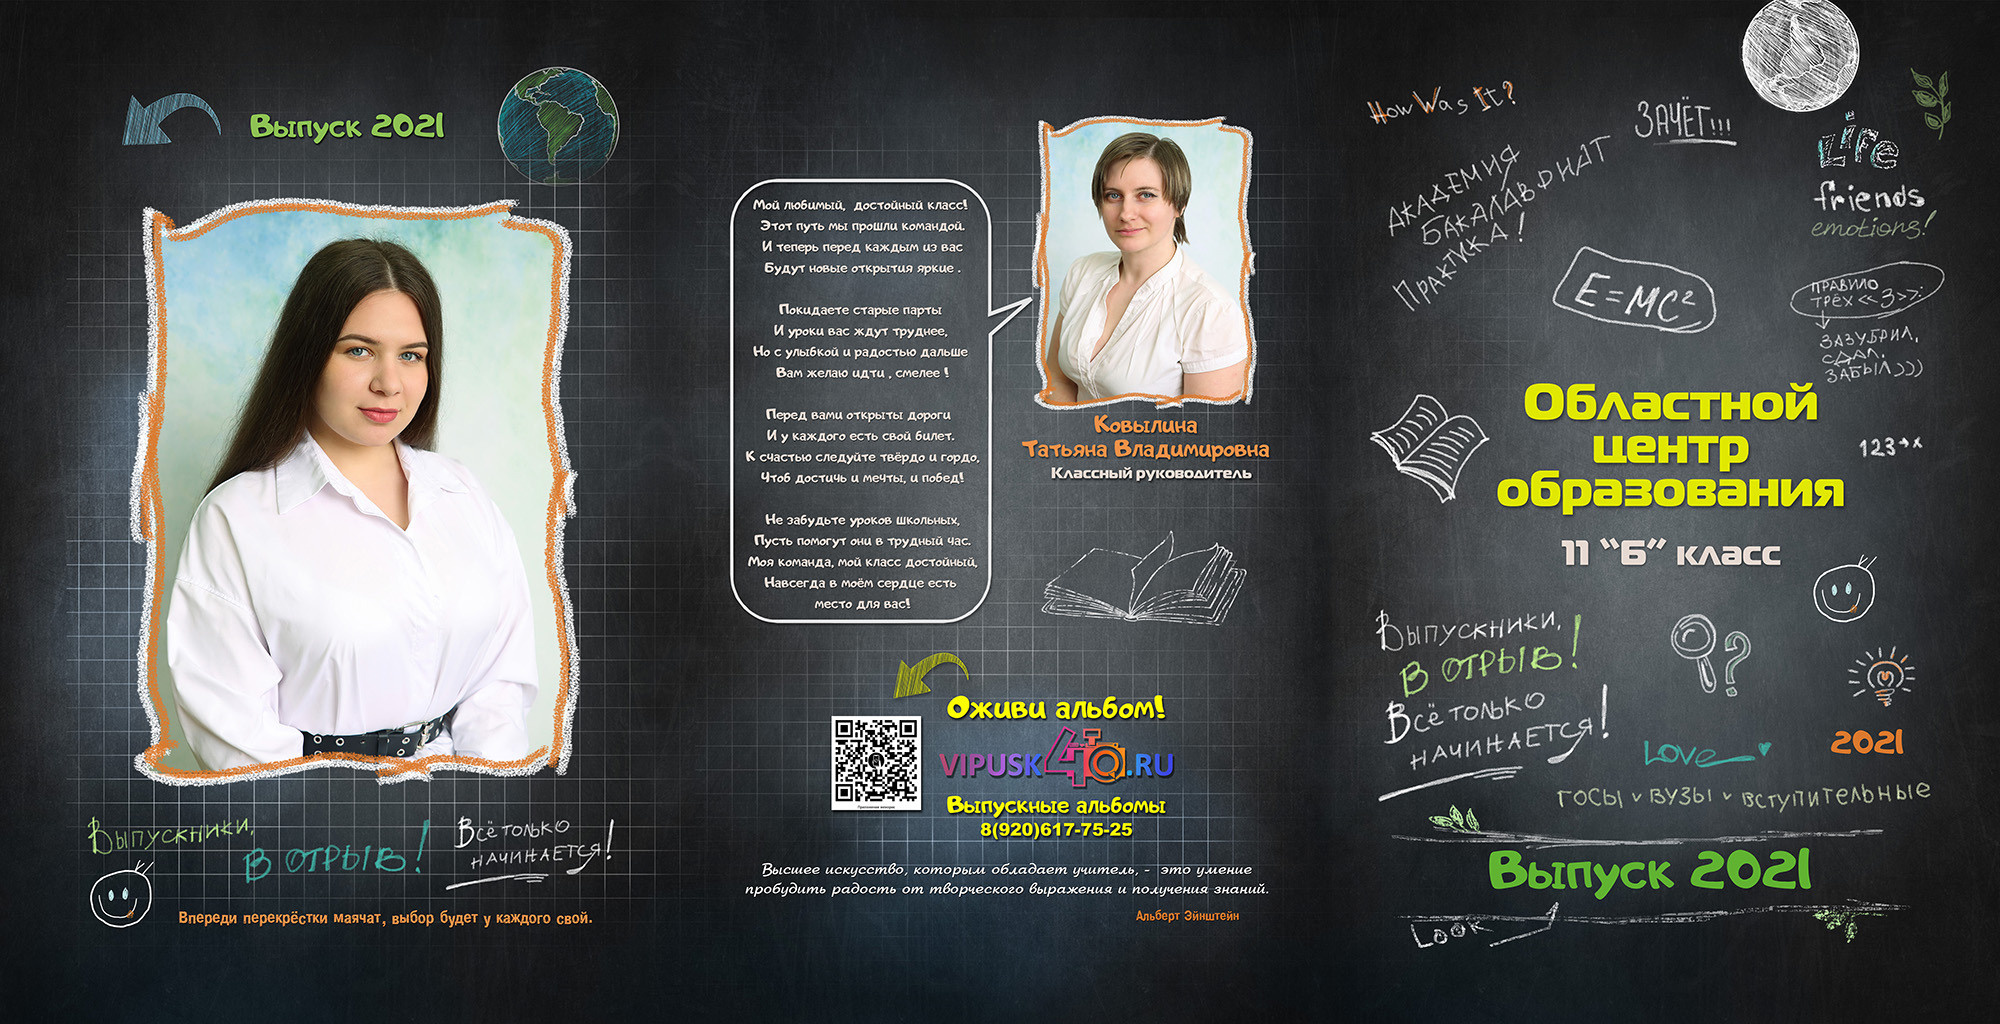 Выпуск 2021
Выпускники,
В отрыв!
Всё только
начинается!
Впереди перекрёстки маячат, выбор будет у каждого свой.
Мой любимый,  достойный класс!
Этот путь мы прошли командой.
И теперь перед каждым из вас
Будут новые открытия яркие .
Покидаете старые парты
И уроки вас ждут труднее,
Но с улыбкой и радостью дальше
Вам желаю идти , смелее !
Перед вами открыты дороги
И у каждого есть свой билет.
К счастью следуйте твёрдо и гордо,
Чтоб достичь и мечты, и побед!
Не забудьте уроков школьных,
Пусть помогут они в трудный час.
Моя команда, мой класс достойный,
Навсегда в моём сердце есть
место для вас!
Ковылина
Татьяна Владимировна
Классный руководитель
Оживи альбом!
VIPUSK40.RU
Выпускные альбомы
8(920)617-75-25
Высшее искусство, которым обладает учитель, -  это умение
пробудить радость от творческого выражения и получения знаний.
Альберт Эйнштейн
How Was It?
ЗАЧЁТ!!!
АКАДЕМИЯ
БАКАЛАВРИАТ
ПРАКТИКА!
Life
friends
emotions!
E=MC²
ПРАВИЛО
ТРЁХ <<З>>:
ЗАЗУБРИЛ,
СДАЛ,
ЗАБЫЛ)))
Областной
центр
образования
123→x
11 “Б” класс
Выпускники,
В отрыв!
Всё только
начинается!
Love
2021
ГОСЫ v ВУЗЫ v ВСТУПИТЕЛЬНЫЕ
Выпуск 2021
Look